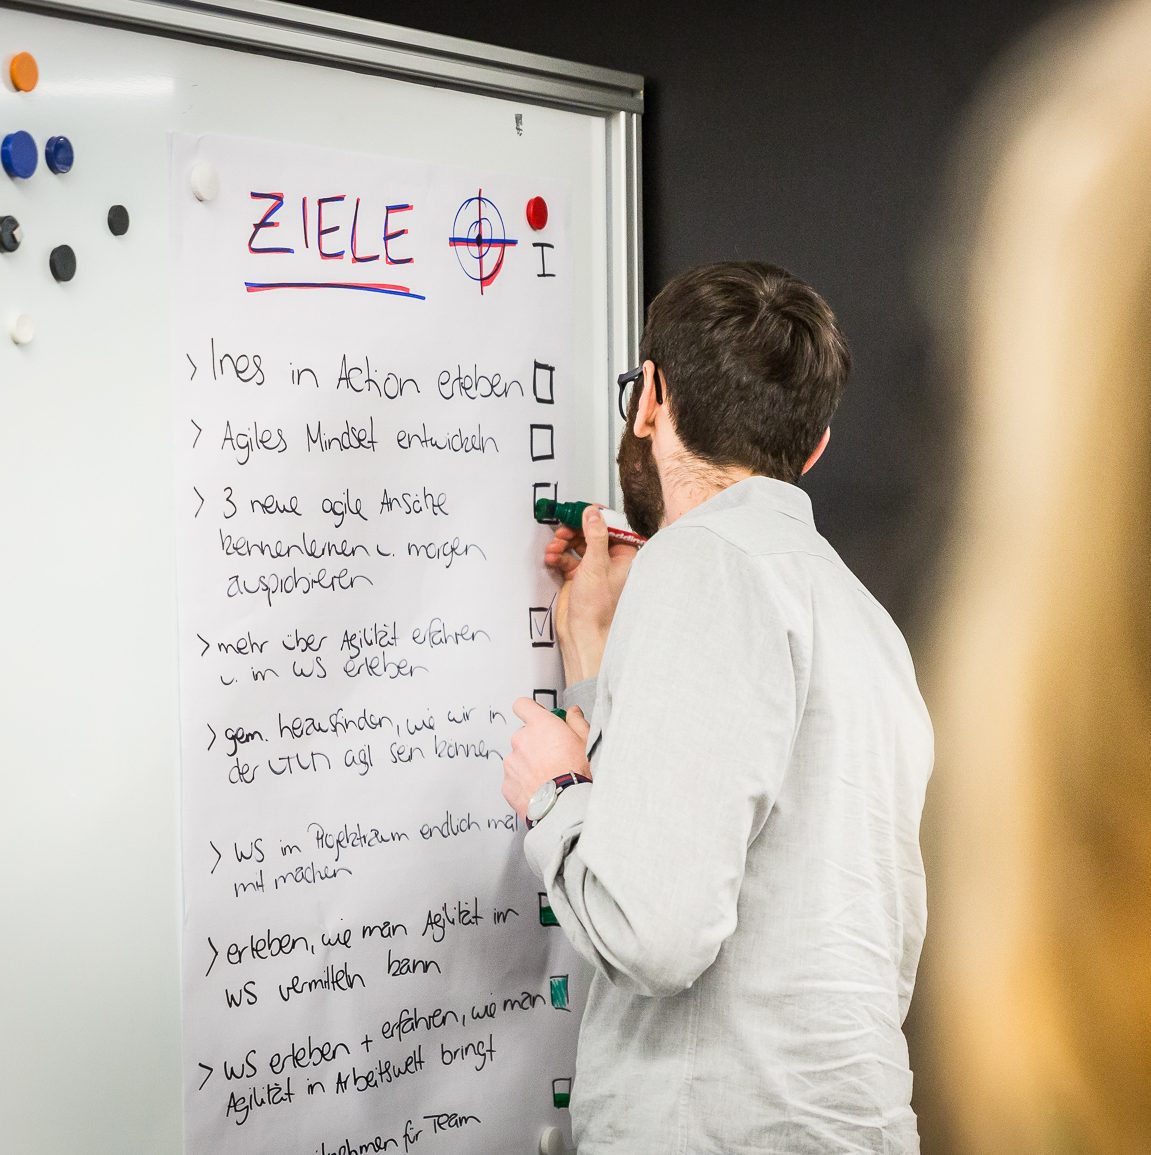 ZIELE
I
> Ines in Action erleben
> Agiles Mindset entwickeln
> 3 neue agile Ansätze
kennenlernen u. morgen
ausprobieren
> mehr über Agilität erfahren
u. im WS erleben
> gem. herausfinden, wie wir in
der agil sein können
> WS im Projektraum endlich mal
mit machen
> erleben, wie man Agilität im
WS vermitteln kann
> WS erleben + erfahren, wie man
Agilität in Arbeitswelt bringt
für Team